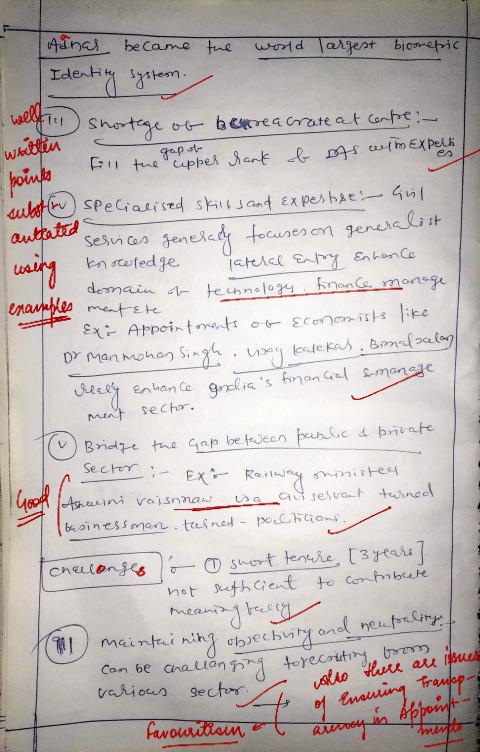 Adhar became the world largest biometric
Identity system.
well written points substantiated using examples
(III) Shortage of bureacrate at centre:-
Fill the gap of upper rank of IAS with Experties
(IV) Specialised skills and Expertise:- Civil
services generaly focuses on generalist
knowledge lateral Entry Enhance
domain of technology, finance manage
ment Etc
Ex:- Appointments of Economists like
Dr Manmohan Singh, Vijay Kelekar, Bimal Jalan
really enhance India's financial & manage
ment sector.
(V) Bridge the Gap between public & private
sector:- Ex:- Railway minister
Good
Ashwini vaisnnaw is a civil servant turned
businessman turned-politicians.
Challenges :- (1) short tenure, [3 years]
not sufficient to contribute
meaningfully
maintaining objectivity and neutrality:-
can be challenging to recruting from
various sector.
Favouritism
Also there are issues
of Ensuring Transp-
arency in Appoint-
ments